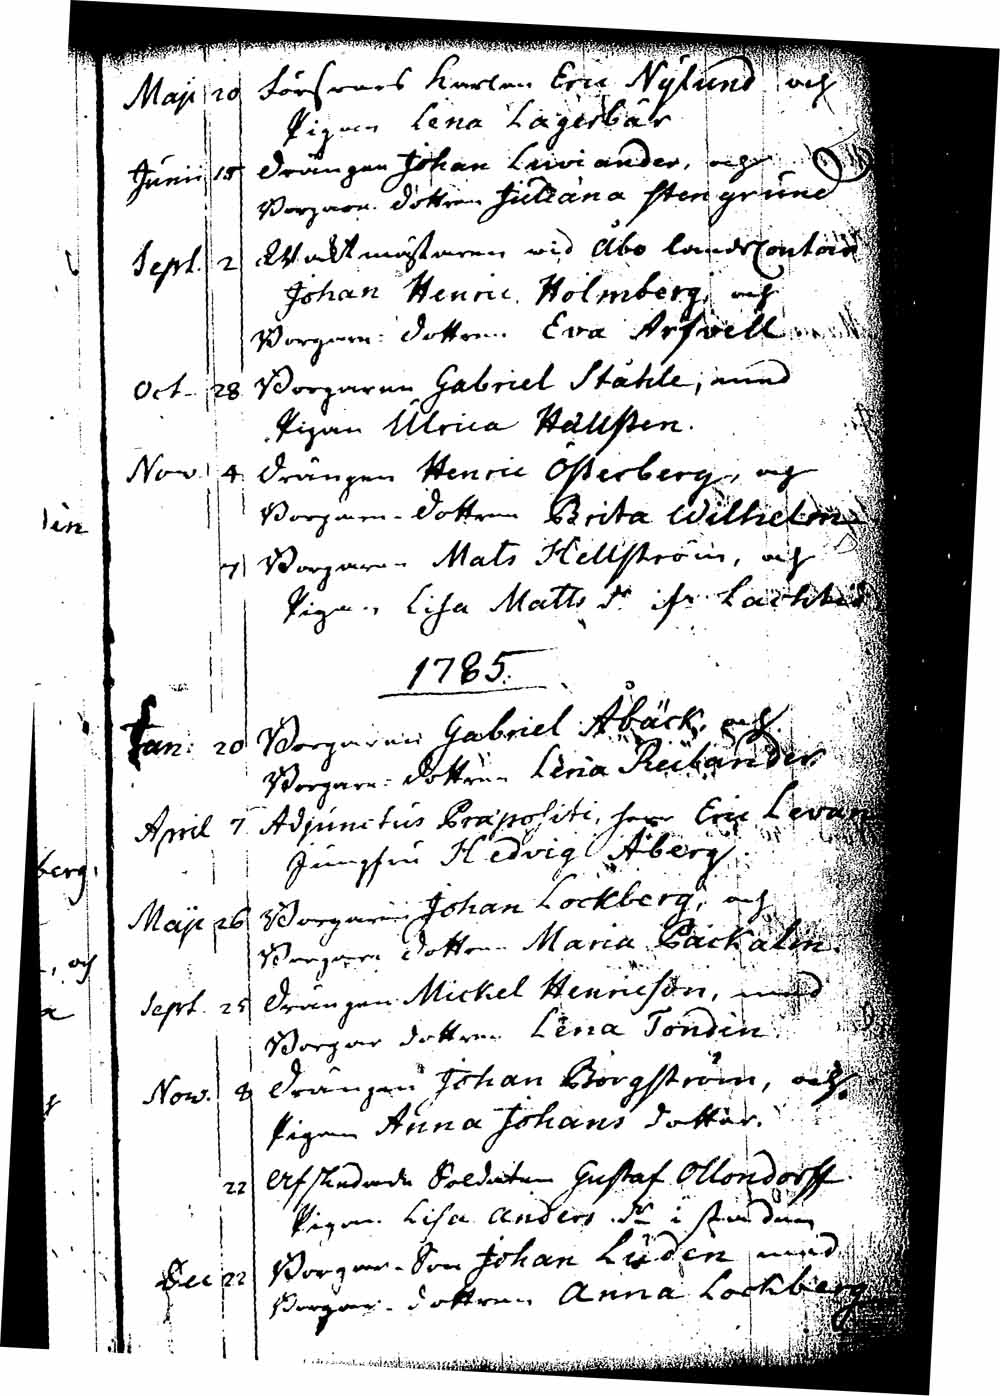 Maji 20 Karlen Eric Nylund och
Pigan Lena Lagerbär
Junii 18 Drängen Johan Luviander, och
Borgare Dottren Juliana Stengrund
Sept. 2 Waktmästaren vid Åbo Lands Contoir
Johan Henric Holmberg, och
Borgare Dottren Eva Arfvell
Oct. 28 Borgaren Gabriel Ståhle, med
Pigan Ulrica Hällsten.
Nov. 4 Drängen Henric Österberg, och
lin
Borgare-Dottren Brita Wilhelm
7 Borgaren Mats Hellström, och
Pigan Lisa Matts Dr fr
1785.
Jan: 20 Borgaren Gabriel Åbäck, och
Borgare-Dottren Lena
April 7 Adjunctus Præpositi, Herr Eric Levan
Jungfru Hedvig Åberg.
berg,
Maji 26 Borgaren Johan Lockberg, och
Borgare Dottren Maria Packalen.
, och
Sept. 25 Drängen Mickel Henricson, med
a
Borgar Dottren Lena Tondin.
Nov. 8 Drängen Johan Borgström, och
Pigan Anna Johans Dotter.
22 Afskedade Soldaten Gustaf Ollondorff.
Pigan Lisa Anders Dr i Staden
Dec 22 Borgar-Son Johan Lüden med
Borgar-Dottren Anna Lockberg